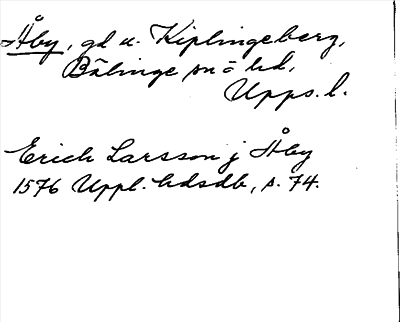 Åby, gd u. Kiplingeberg,
Bälinge sn o hd,
Upps. l.
Erich Larsson j Åby
1576 Uppl. hdsdb, s. 74.